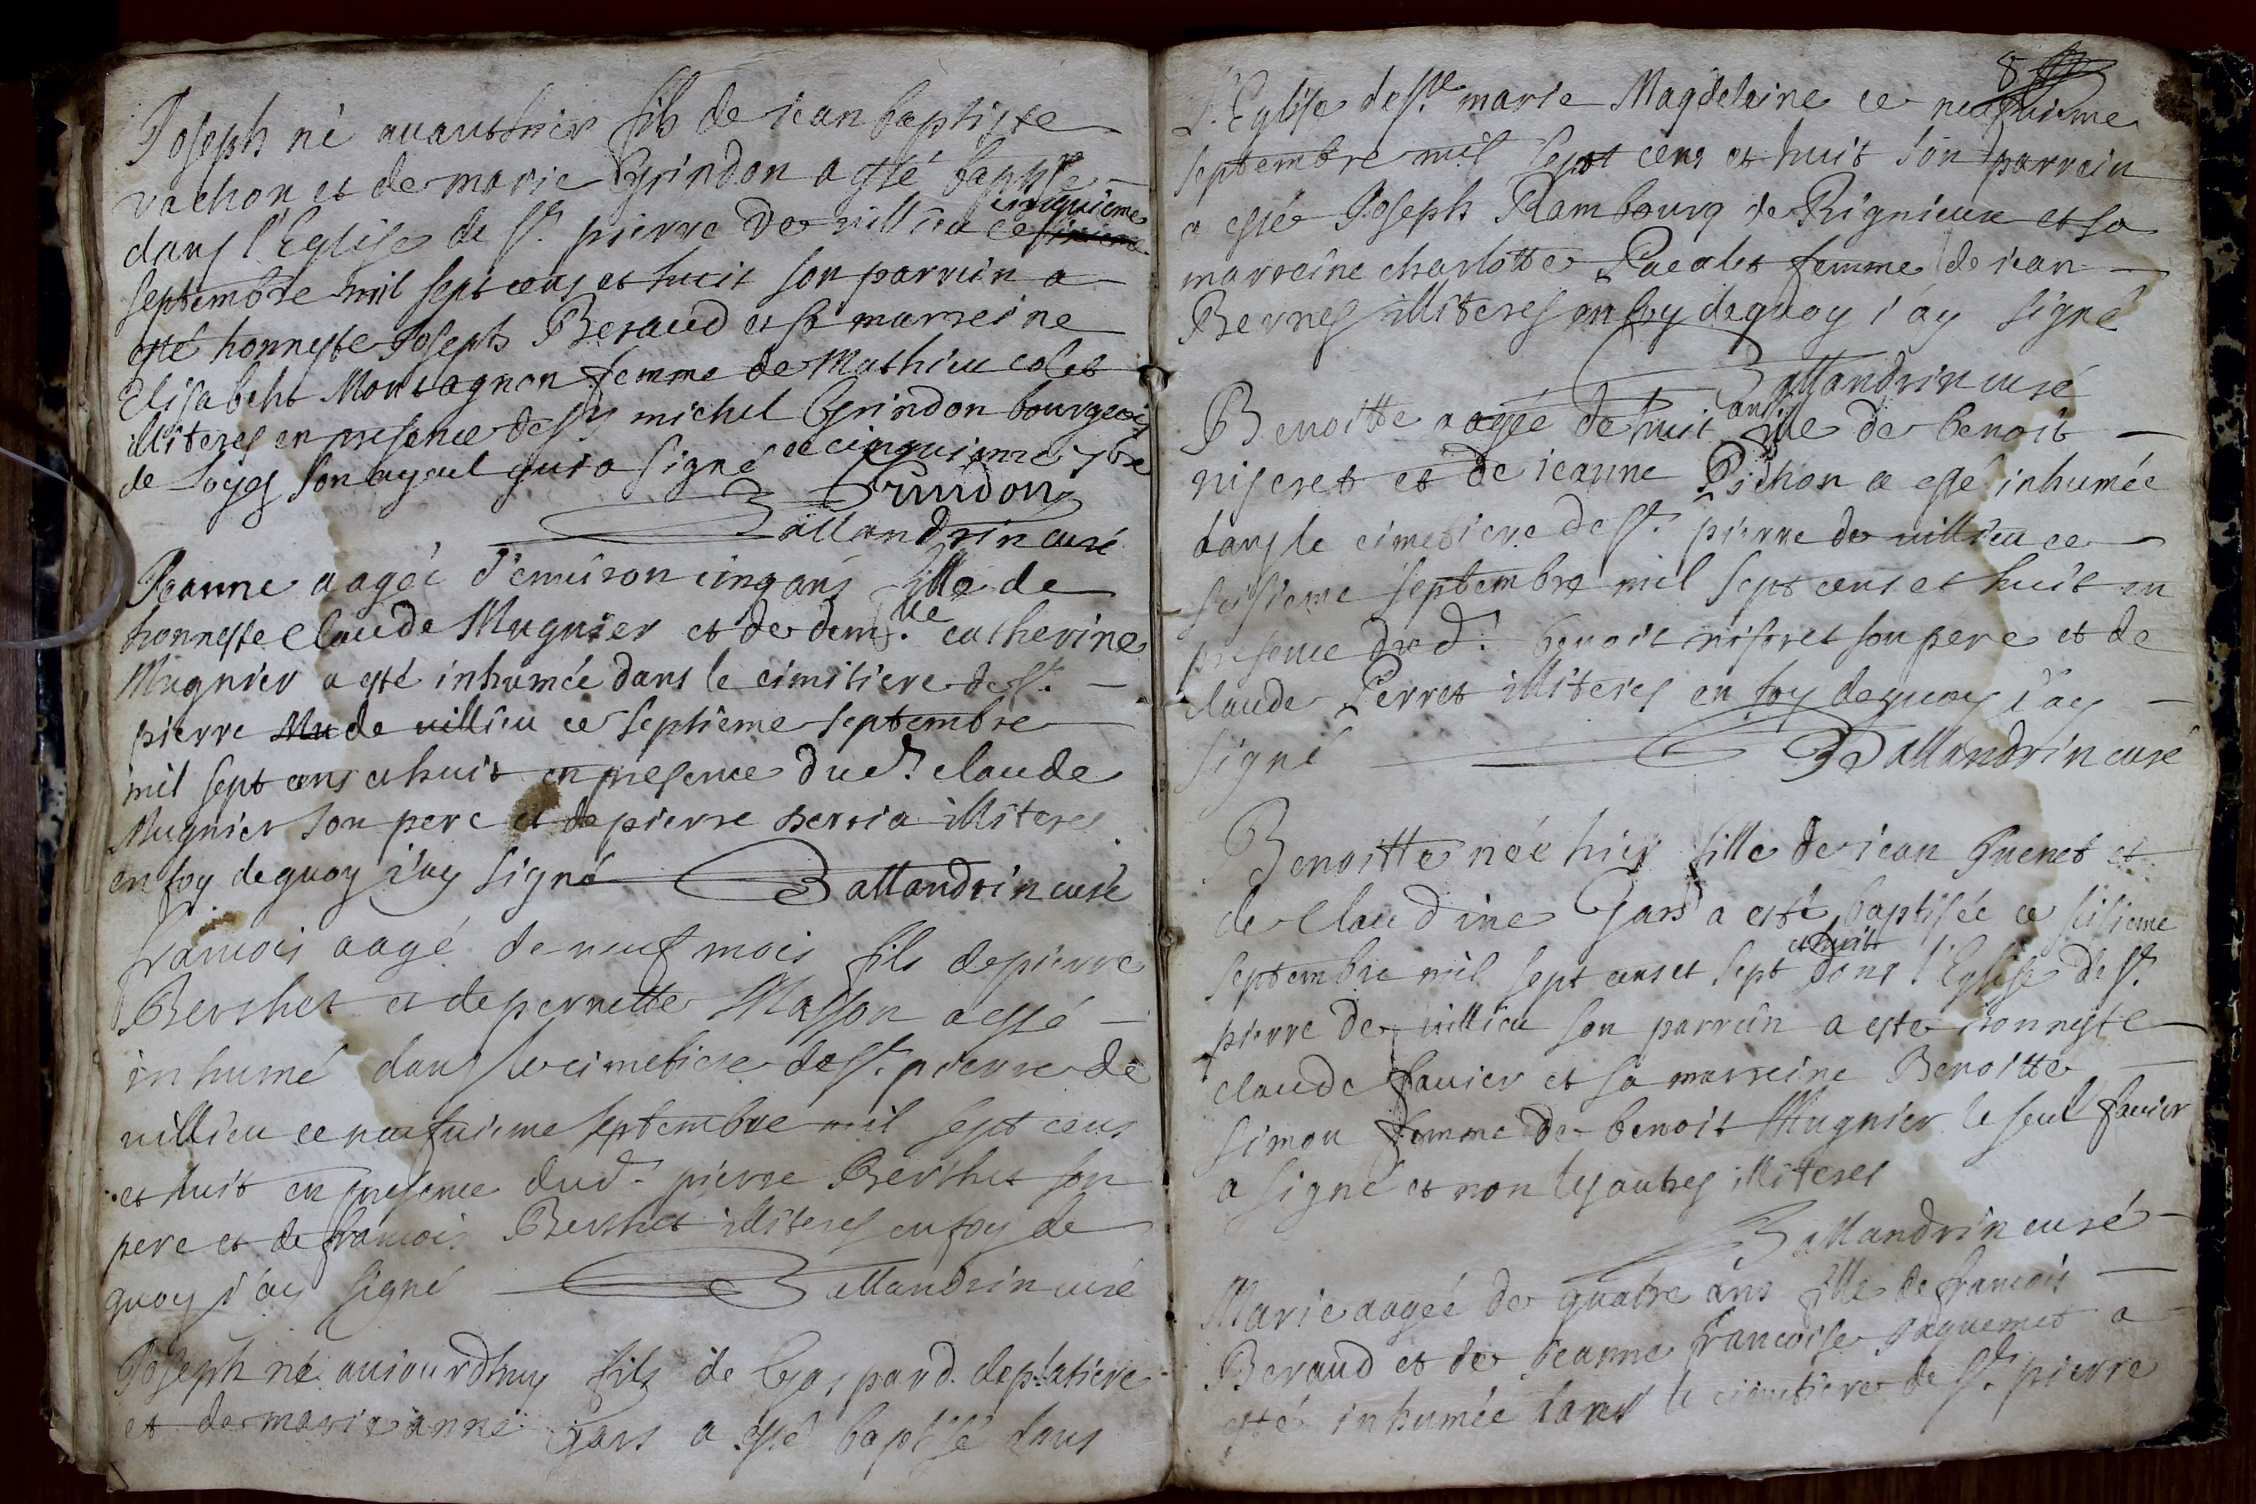 Joseph né auanthier fils de iean baptiste
vachon et de marie Grindon a esté baptisé
dans l'Eglise de st. pierre de uillieu ce sixieme cinquieme
septembre mil sept cens et huit son parrein a
esté honneste Joseph Beraud et sa marreine
Elisabeht Montagnon femme de Mathieu colet
illiteres en presence de sr michel Grindon bourgeois
de Loyes son ayeul qui a signé ce cinquieme 7bre
Grindon
Ballandrin curé
Jeanne aagée d'enuiron cinq ans fille de
honneste claude Mugnier et de demlle. catherine
Mugnier a esté inhumée dans le cimitiere de st.
pierre Mu de uillieu ce septieme septembre
mil sept cens et huit en presence dud. claude
Mugnier son pere et de pierre illiteres
en foy de quoy i'ay signé Ballandrin curé
francois aagé de neuf mois fils de pierre
Berthet et de pernette Masson a esté
inhumé dans le cimetiere de st. pierre de
uillieu ce neufuieme septembre mil sept cens
et huit en presence dud. pierre Berthet son
pere et de francois Berthet illiteres en foy de
quoy i'ay signé Ballandrin curé
Joseph né auiourdhuy fils de Gaspard deplatiere
et de marie anne Gars a esté baptisé dans
8
l'Eglise de ste marie Magdelaine ce neufuieme
septembre mil sept cens et huit son parrein
a esté Joseph Rambourg de Rignieux et sa
marreine charlotte Pacalet femme de iean
Bernes illiteres en foy de quoy i'ay signé
Ballandrin curé
Benoitte aagée de huit ans fille de benoit
niseret et de ieanne Pichon a esté inhumée
dans le cimetiere de st. pierre de uillieu ce
seisieme septembre mil sept cens et huit en
presence dud. benoit niseret son pere et de
claude Perret illiteres en foy de quoy i'ay
signé Ballandrin curé
Benoitte née hier fille de iean Quenet et
de claudine Gars a esté baptisée ce sisieme
septembre mil sept cens et sept et huit dans l'Eglise de st.
pierre de uillieu son parrein a esté honneste
claude fauier et sa marreine Benoitte
Simon femme de benoit Mugnier le seul fauier
a signé et non les autres illiteres
Ballandrin curé
Marie aagée de quatre ans fille de francois
Beraud et de Jeanne francoise Jaquemet a
esté inhumée dans le cimetiere de st. pierre